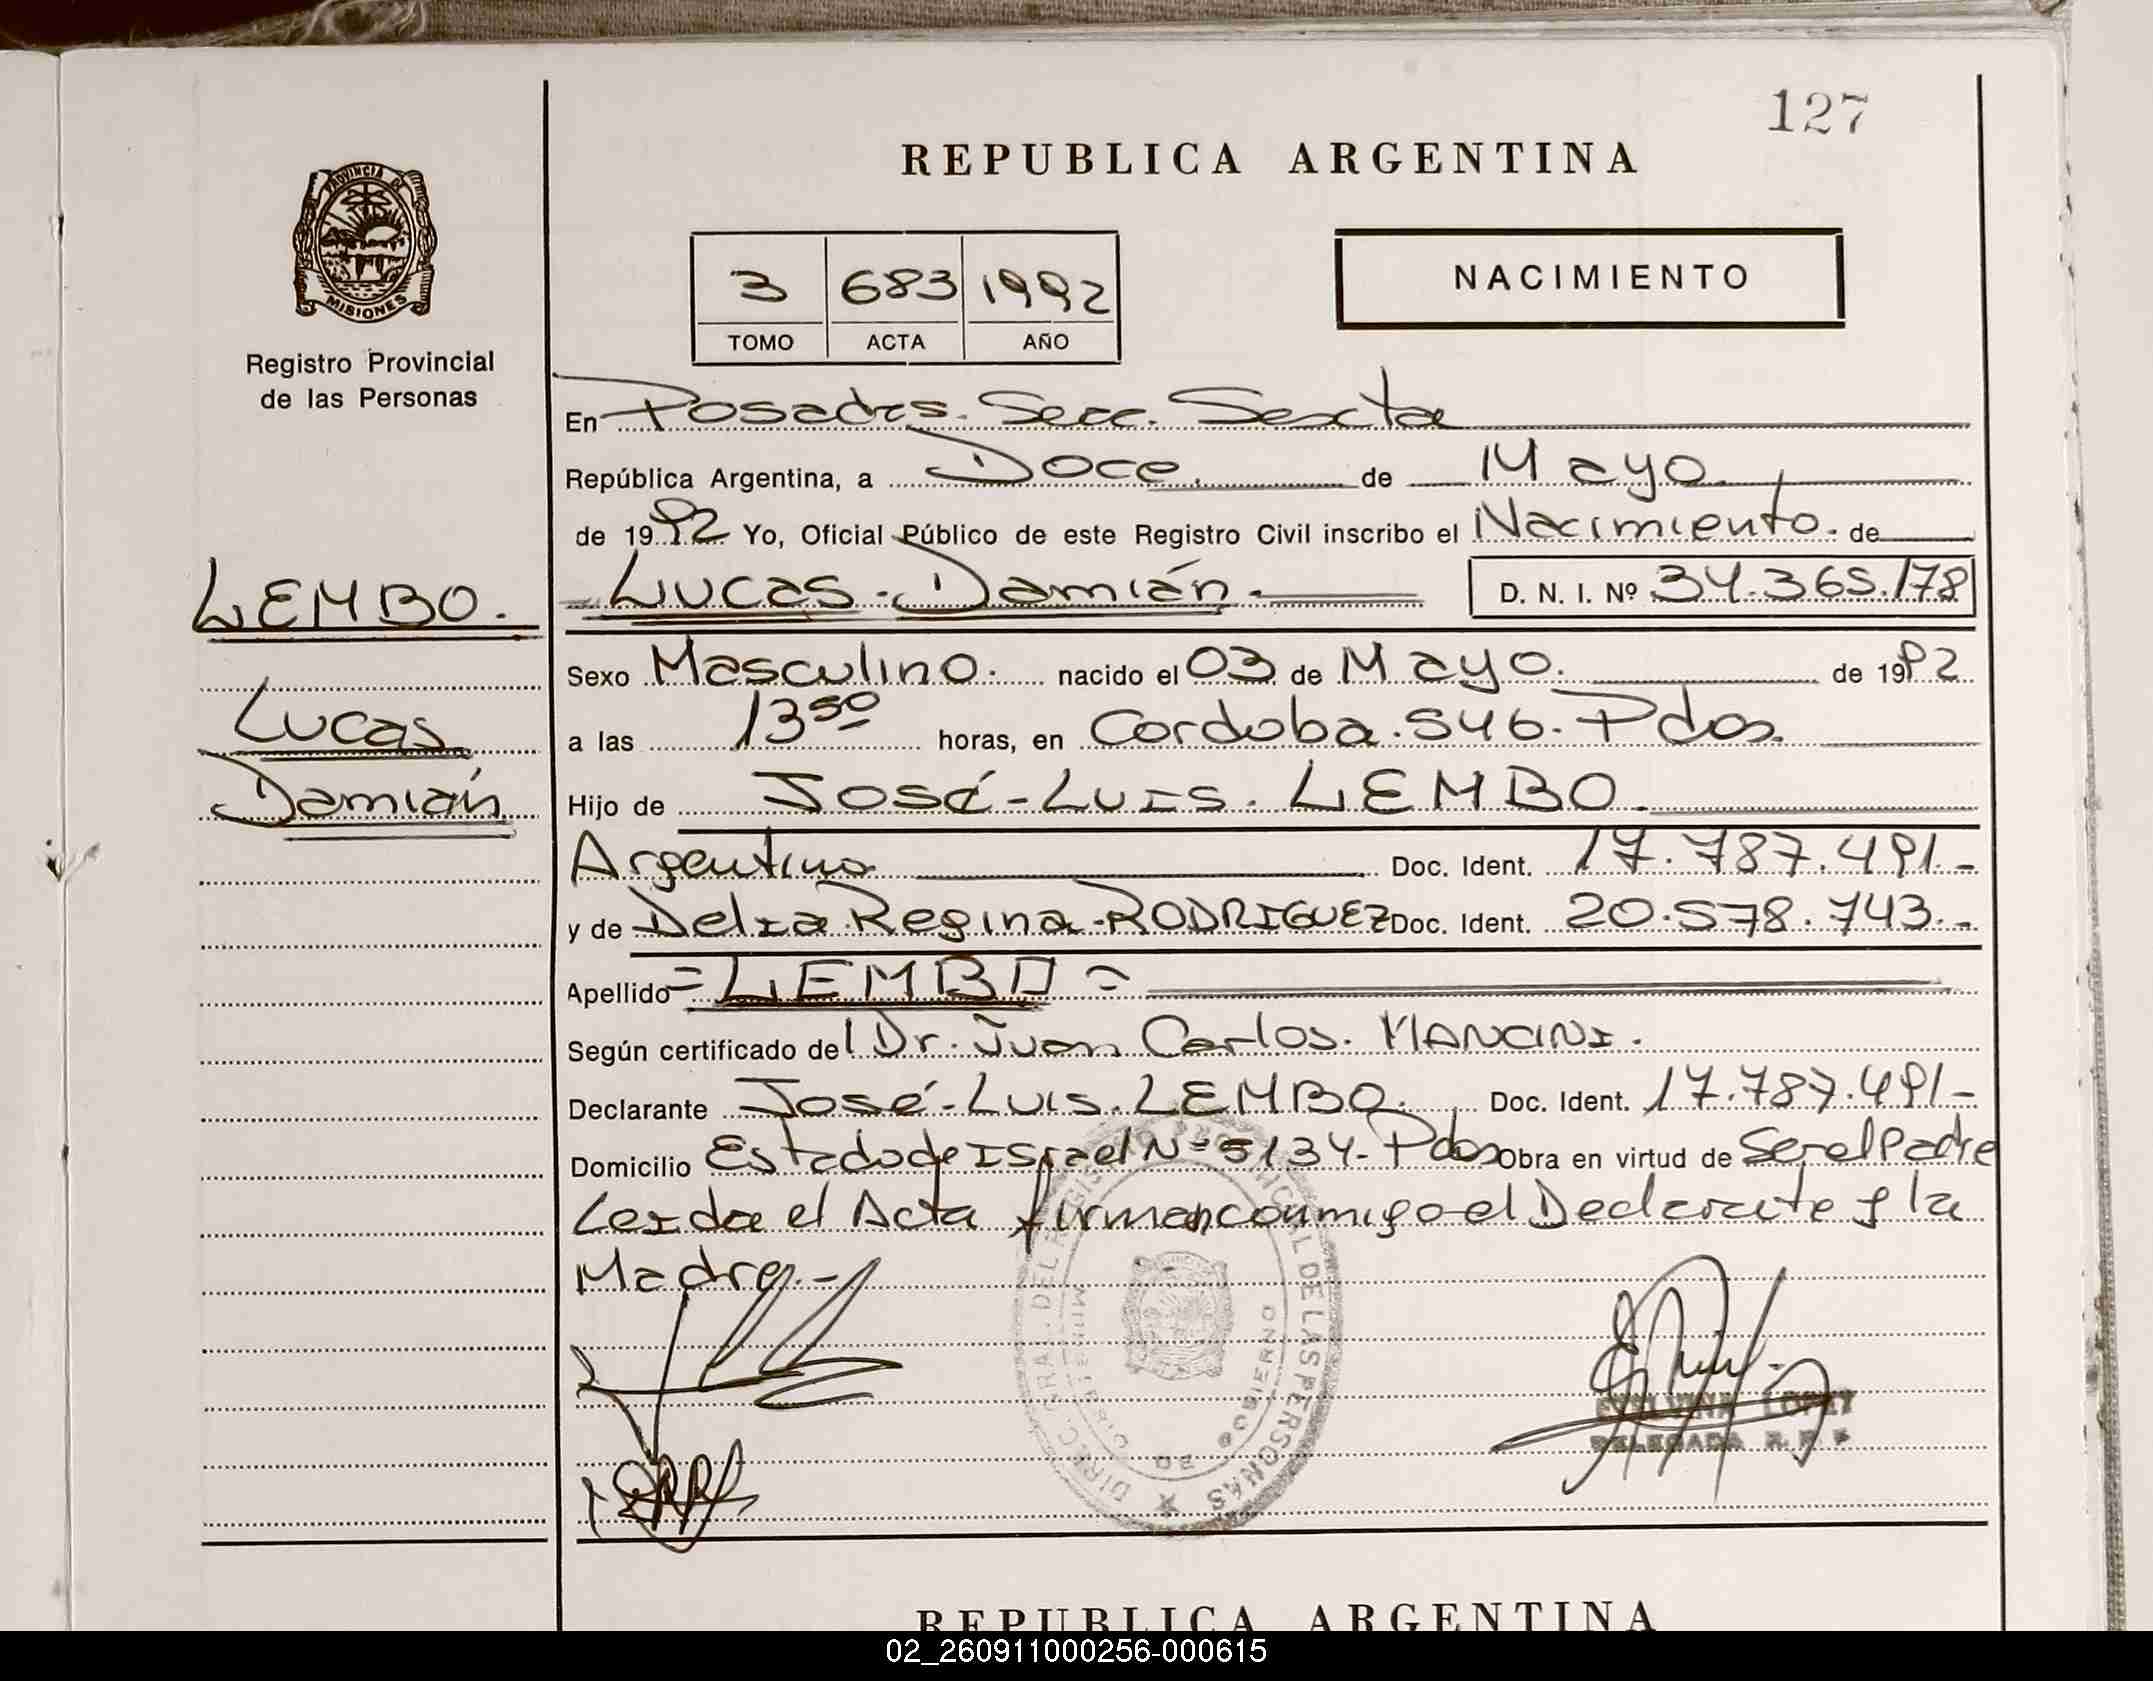 127
REPUBLICA ARGENTINA
PROVINCIA DE
MISIONES
Registro Provincial
de las Personas
3 683 1992
TOMO ACTA AÑO
NACIMIENTO
En Posadas. Secc. Sexta
República Argentina, a Doce. de Mayo
de 1992 Yo, Oficial Público de este Registro Civil inscribo el Nacimiento. de
Lucas. Damián. D. N. I. Nº 34.365.178
LEMBO.
Lucas
Damián
Sexo Masculino. nacido el 03 de Mayo. de 1992
a las 13 50 horas, en Cordoba. 546. Pdas.
Hijo de José-Luis. LEMBO.
Argentino Doc. Ident. 17.787.491.-
y de Delia Regina. RODRIGUEZ Doc. Ident. 20.578.743.-
Apellido = LEMBO =
Según certificado del Dr. Juan Carlos. MANCINI.
Declarante José-Luis. LEMBO. Doc. Ident. 17.787.491-
Domicilio Estado de Israel Nº 5134- Pdas Obra en virtud de Ser el Padre
Leida el Acta firman conmigo el Declarante y la
Madre.-
DIREC. GRAL. DEL REGISTRO PROVINCIAL DE LAS PERSONAS
MINISTERIO DE GOBIERNO
LOPEZ
DELEGADA R. P. P.
REPUBLICA ARGENTINA
02_260911000256-000615